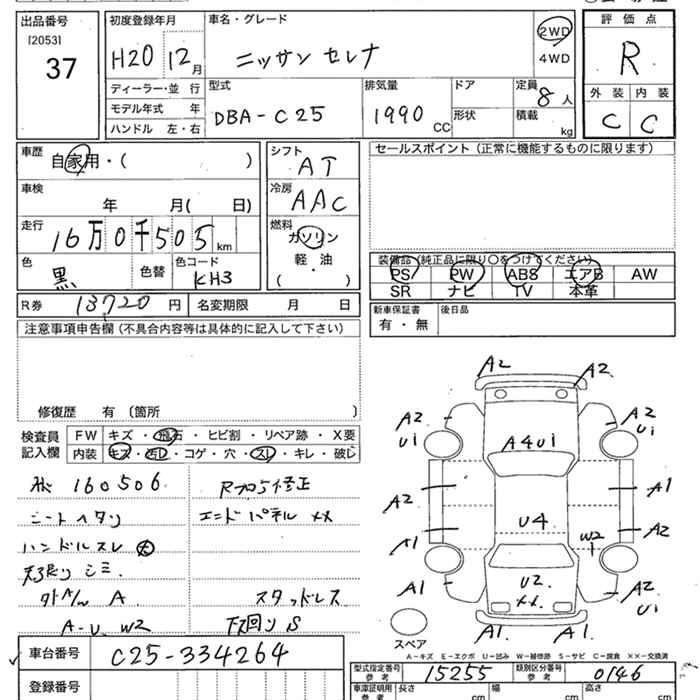 出品番号
[2053]
37
初度登録年月
H20 12月
車名・グレード
ニッサン セレナ
2WD
4WD
評価点
R
外装 内装
C C
ディーラー・並 行
モデル年式 年
ハンドル 左・右
型式
DBA-C25
排気量
1990 CC
ドア
形状
定員
8人
積載
kg
車歴
自家用・( )
車検
年 月( 日)
走行
16万0千505km
色
黒
色替
色コード
KH3
シフト
AT
冷房
AAC
燃料
ガソリン
軽・油
( )
セールスポイント (正常に機能するものに限ります)
装備品(純正品に限り〇をつけてください)
PS PW ABS エアB AW
SR ナビ TV 本革
R券 13720円 名変期限 月 日
新車保証書
有・無
後日品
注意事項申告欄 (不具合内容等は具体的に記入して下さい)
修復歴 有 (箇所 )
検査員
記入欄
FW キズ・飛石・ヒビ割・リペア跡・X要
内装 キズ・汚レ・コゲ・穴・スレ・キレ・破レ
160506
シートヘタリ
ハンドルスレ
天張リ シミ.
A
A-U W2
修正
エンドパネル XX
スタッドレス
下回リS
A2
A2
A2
U1
A2
U1
A4U1
A2
A1
U4
A1
A2
W2
A1
U2
XX
A2
U1
A1
A1
スペア
A-キズ E-エクボ U-凹み W-補修跡 S-サビ C-腐食 XX-交換済
車台番号
C25-334264
登録番号
型式指定番号
参考
15255
類別区分番号
参考
0146
車庫証明用
参考
長さ cm 幅 cm 高さ cm